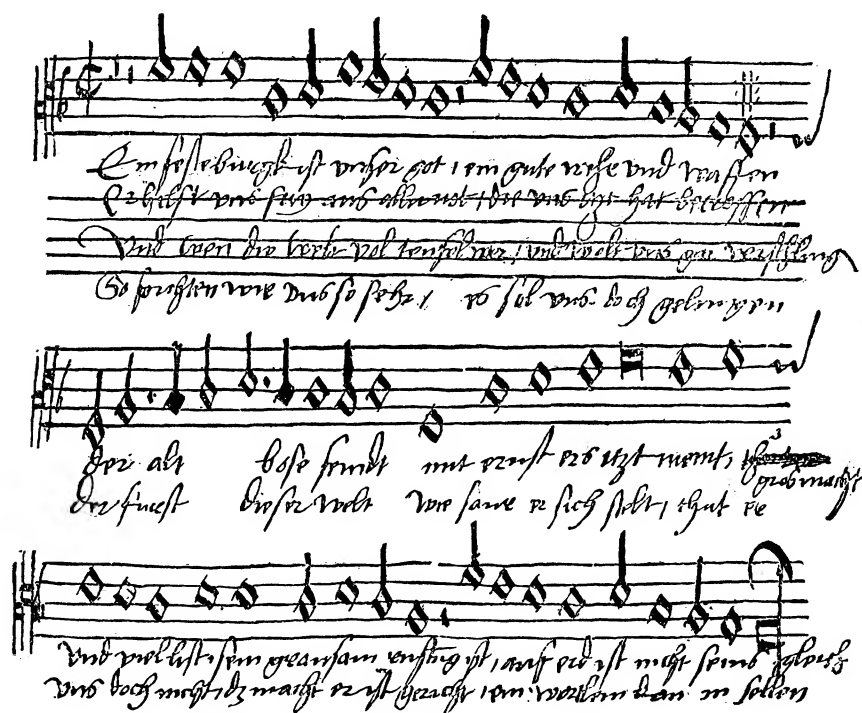 Ein feste burgk ist unser got, ein gute wehr und waffen
Er hilft uns frey aus aller not, die uns itzt hat betroffen
Und wen die welt vol teufel wer, und wolt uns gar verschling
So furchten wir uns so sehr, es sol uns doch gelingen
der alt bose feindt mit ernst ers itzt meint, gros macht
der furst dieser welt wie saur er sich stelt, thut er
Und viel list, sein grausam rustung ist, auf erd ist nicht seins gleich
uns doch nicht, dz macht er ist gericht, ein wortlein kan in fellen